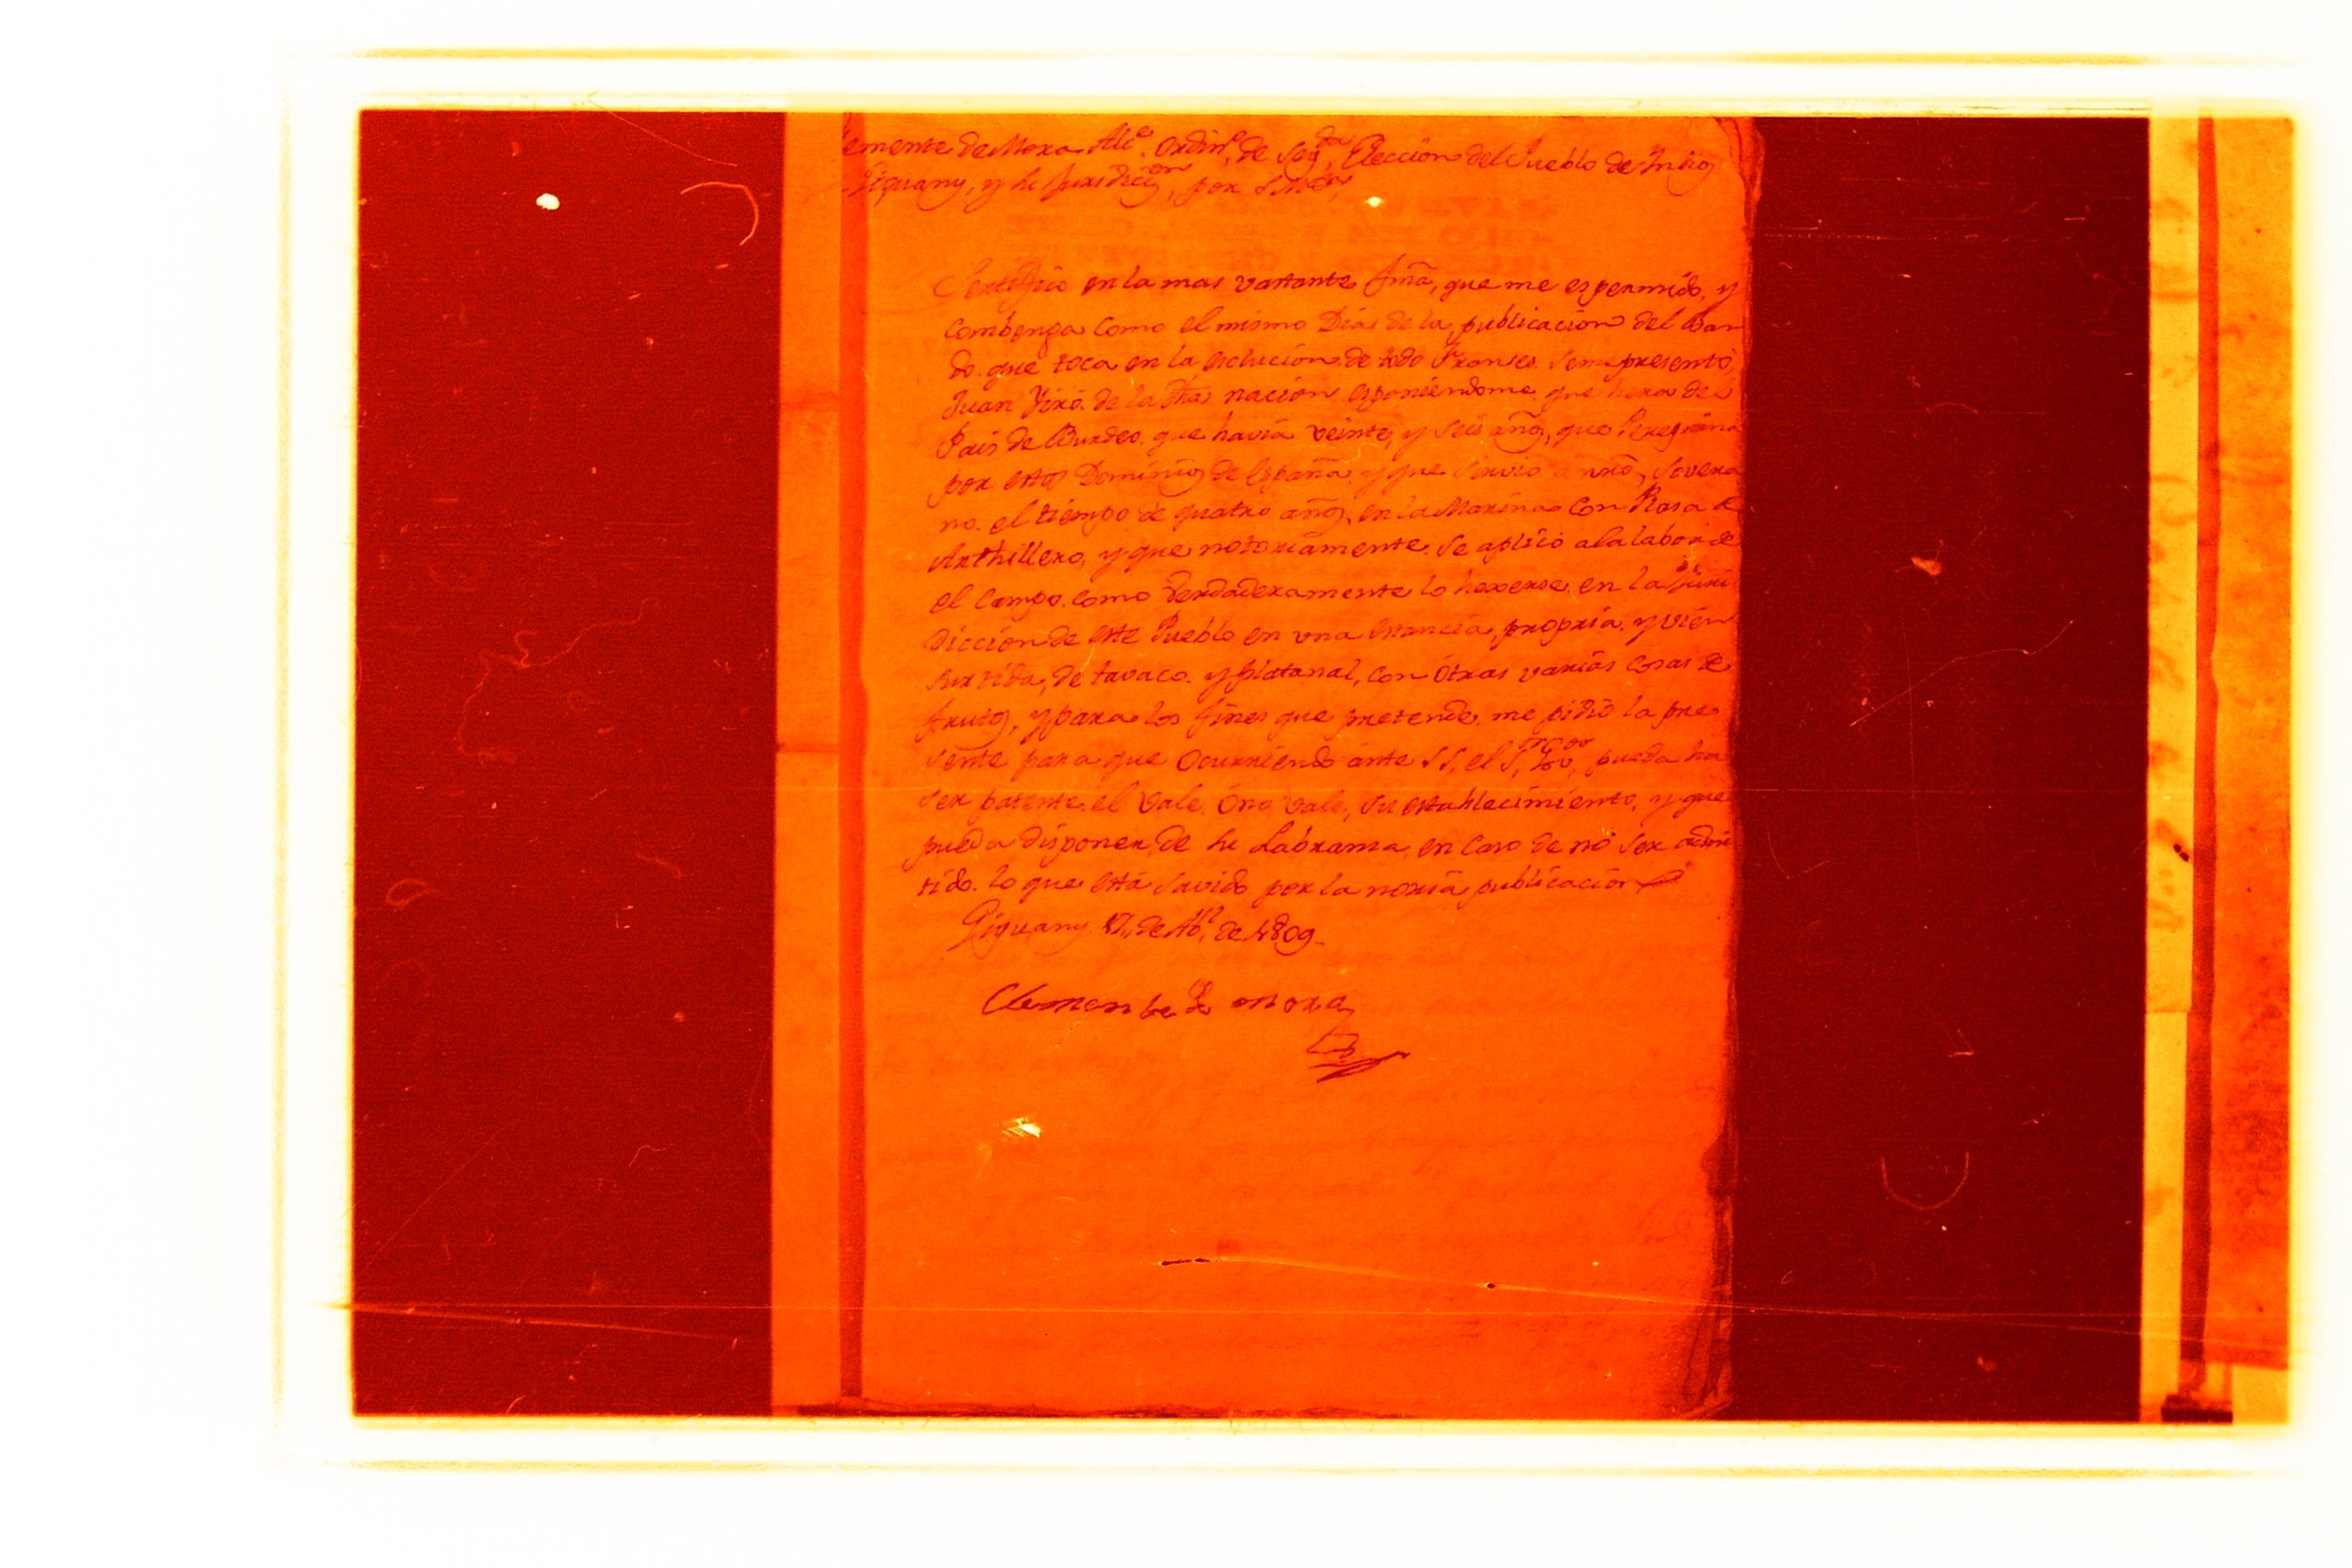 emente de Mora Alc.e Ordin.o de Seg.da Eleccion del Pueblo de Indios
Giguany, y su Juridicion, por S M
Sertifico en la mas vastante fma, que me es permitido, y
combenga como el mismo Dia de la publicacion del Ban
do. que toca en la esclucion de todo Franses. se me presentó
Juan Firó. de la dha nacion esponiendome que hera del
Pais de Burdeo. que havia veinte y seis años, que Peregrina
por estos Dominios de España y que sirvio a nro, Sovera
no. el tiempo de quatro años, en la Marina con Plasa de
Arthillero, y que notoriamente se aplicó a la labor de
el Campo. como Verdaderamente lo hexerse en la Juri
diccion de este Pueblo en una estancia, propria. y vien
surtida, de tavaco. y platanal, con ótras varias cosas de
frutos, y para los fines que pretende me pidió la pre
sente para que ocurriendo ante S S, el S.or Gov.or, pueda ha
ser patente el Vale óno Vale, su establecimiento, y que
pueda disponer, de su Labransa en caso de nó ser admi
tido. lo que está savido por la noria publicacion
Giguany 17,, de Ab.l de 1809_
Clemente de mora